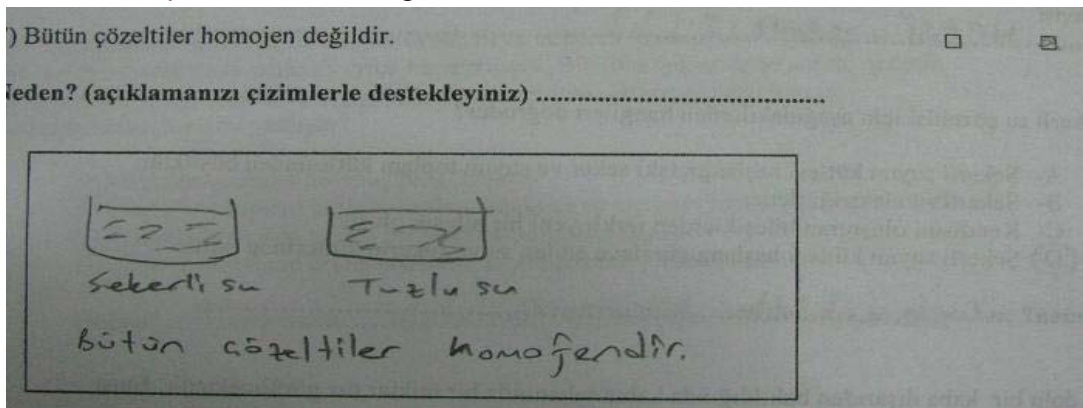 ) Bütün çözeltiler homojen değildir.
eden? (açıklamanızı çizimlerle destekleyiniz) ..........................................
Şekerli su Tuzlu su
Bütün çözeltiler homojendir.